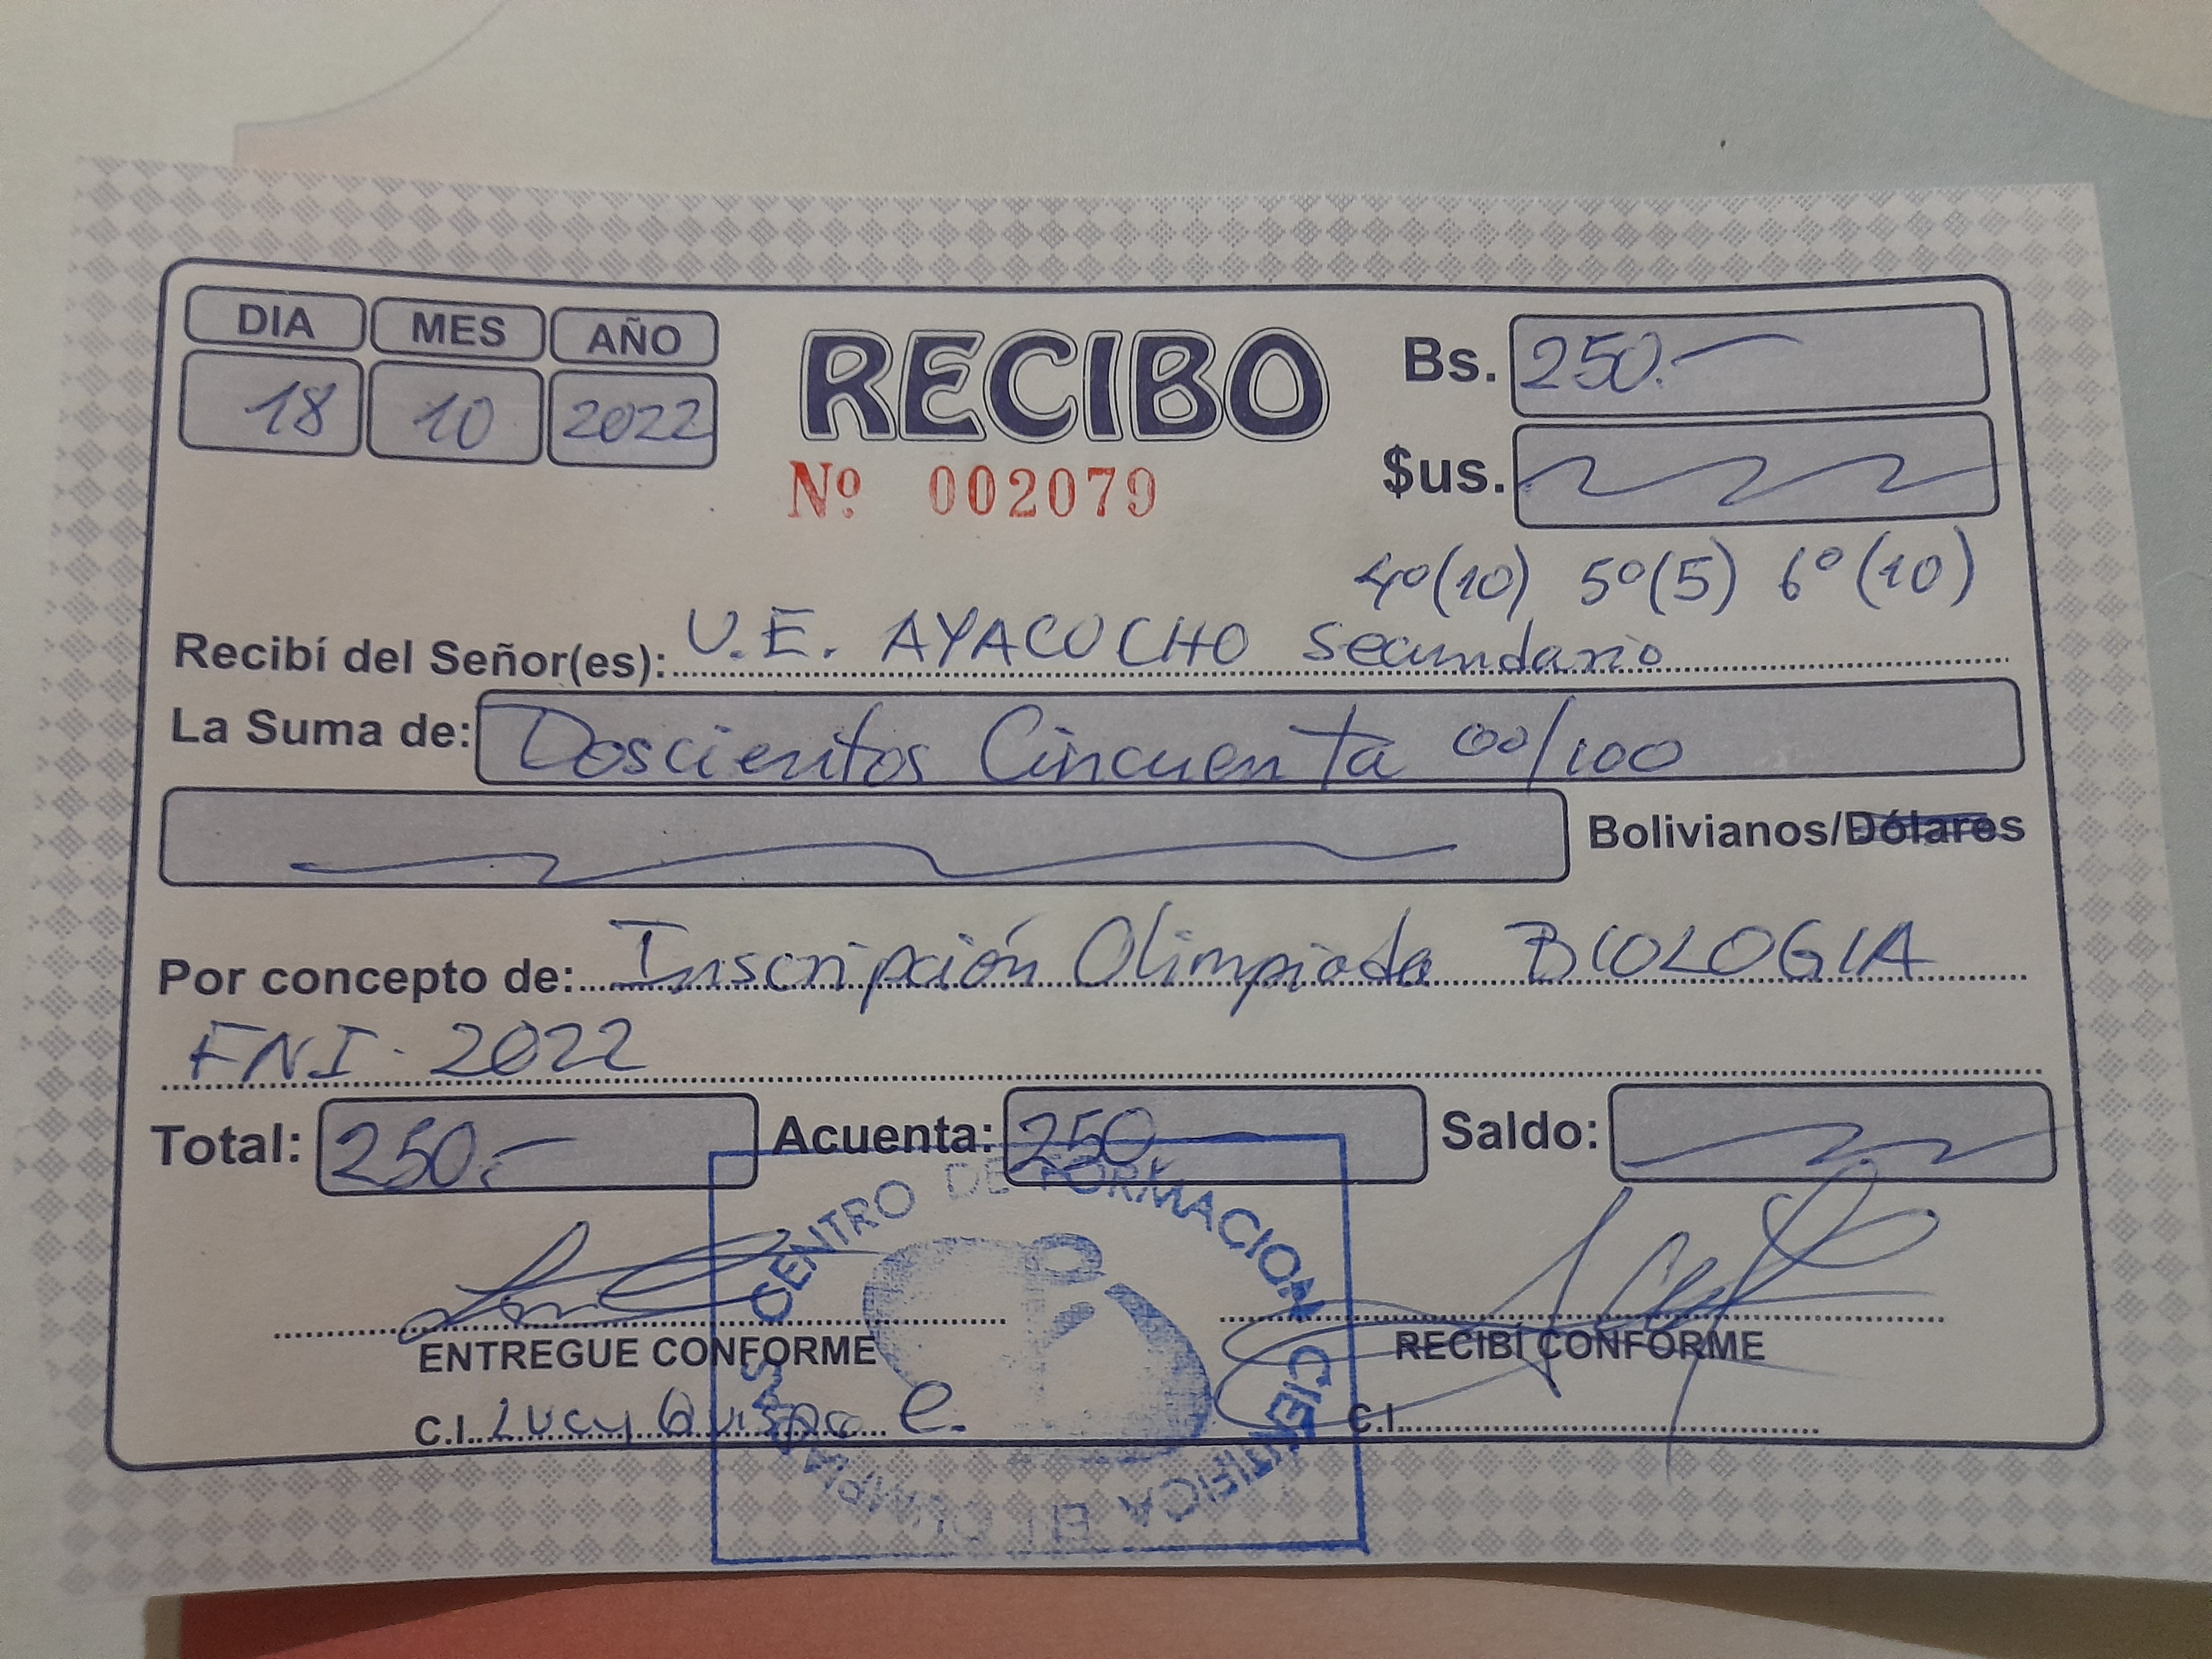 DIA MES AÑO
18 10 2022
RECIBO
Nº 002079
Bs. 250.-
$us.
4º(10) 5º(5) 6º(10)
Recibí del Señor(es): U.E. AYACUCHO secundario
La Suma de: Doscientos Cincuenta 00/100
Bolivianos/Dólares
Por concepto de: Inscripción Olimpiada BIOLOGIA
FNI - 2022
Total: 250.- Acuenta: 250 Saldo:
ENTREGUE CONFORME RECIBÍ CONFORME
C.I. Lucy C.I.
CENTRO DE FORMACIÓN CIENTIFICA